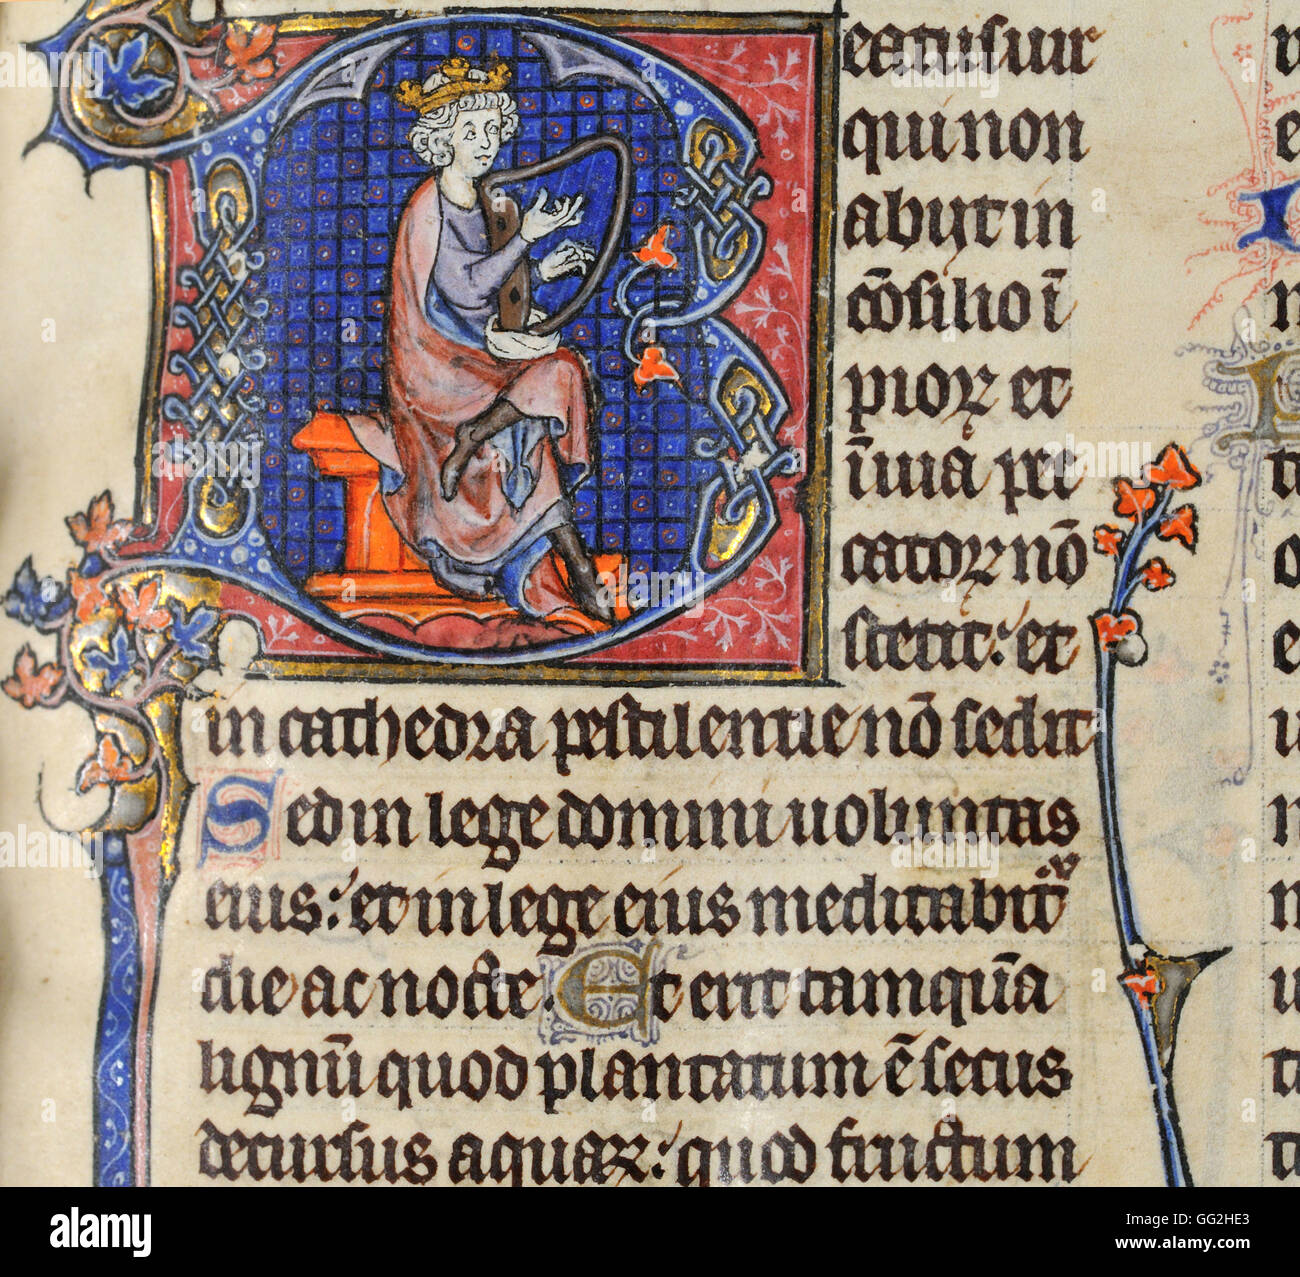 Beatus uir
qui non
abyit in
cōsilio ī
pioꝝ et
ī uia pec
catoꝝ nō
stetit: et
in cathedra pestilentie nō sedit
Sed in lege domini uoluntas
eius: et in lege eius meditabit᷑
die ac nocte. Et erit tamquā
lignū quod plantatum ē secus
decursus aquaꝝ: quod fructum
alamy
Image ID: GG2HE3
www.alamy.com